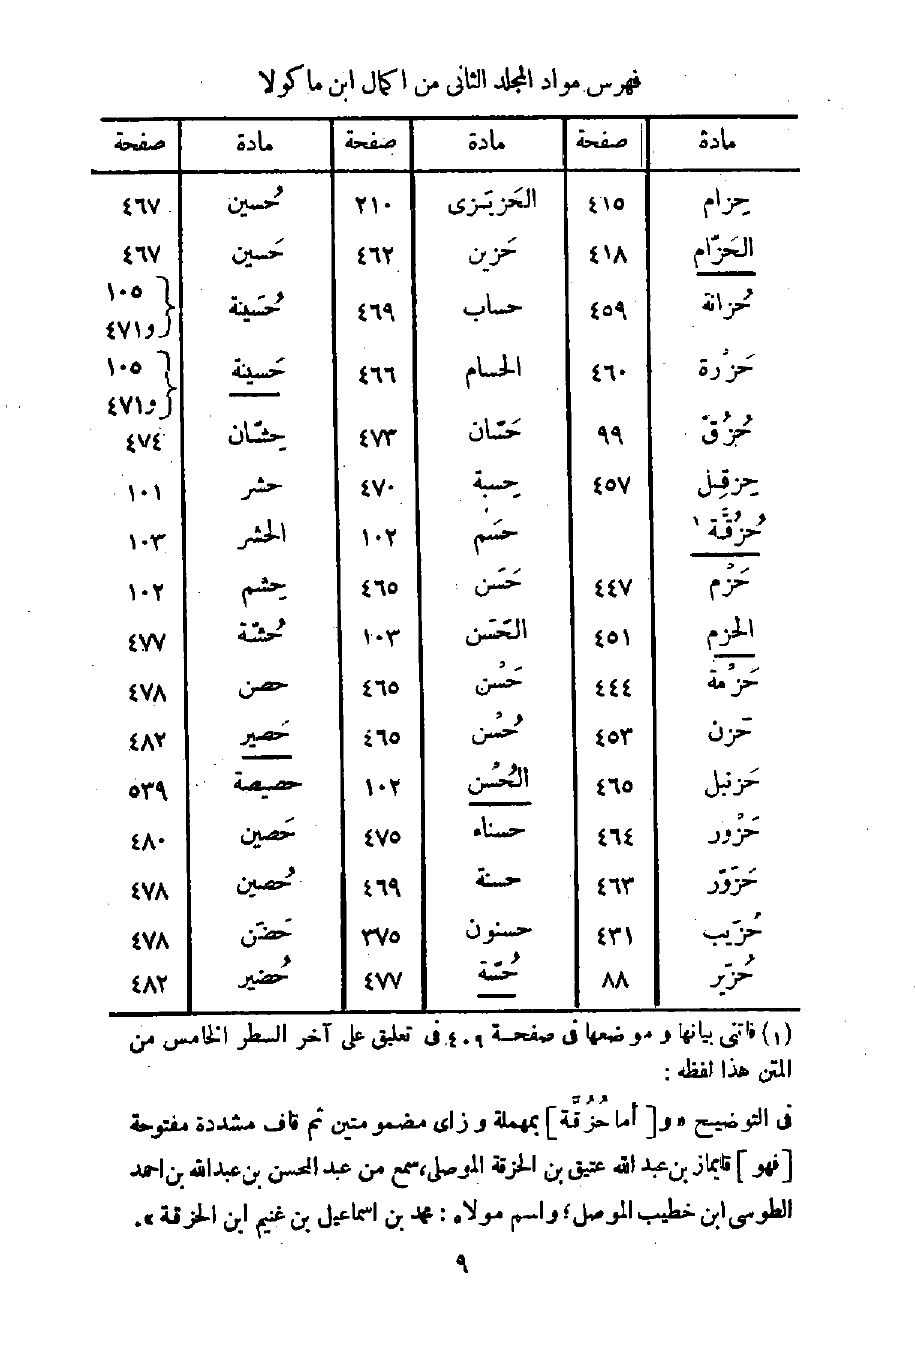 فهرس مواد المجلد الثانى من اكمال ابن ماكولا
مادة صفحة مادة صفحة مادة صفحة
حِزام ٤١٥ الحَزيَزى ٢١٠ حُسين ٤٦٧
الحَزّام ٤١٨ حَزين ٤٦٢ حَسين ٤٦٧
حُزانة ٤٥٩ حساب ٤٦٩ حُسَينة {١٠٥ و٤٧١
حَزْرة ٤٦٠ الحسام ٤٦٦ حَسينة {١٠٥ و٤٧١
حُزُقّ ٩٩ حَسّان ٤٧٣ حِشّان ٤٧٤
حِزقِيل ٤٥٧ حِسبة ٤٧٠ حشر ١٠١
حُزُقَّة ١ حَسَم ١٠٢ الحشر ١٠٣
حَزْم ٤٤٧ حَسَن ٤٦٥ حِشم ١٠٢
الحزم ٤٥١ الحَسَن ١٠٣ حُشّة ٤٧٧
حَزْمة ٤٤٤ حَسْن ٤٦٥ حصن ٤٧٨
حَزن ٤٥٣ حُسْن ٤٦٥ حَصير ٤٨٢
حَزنبل ٤٦٥ الحُسْن ١٠٢ حصيصة ٥٣٩
حَزْور ٤٦٤ حسناء ٤٧٥ حَصين ٤٨٠
حَزَوَّر ٤٦٣ حسنة ٤٦٩ حُصين ٤٧٨
حُزَيب ٤٣١ حسنون ٣٧٥ حَضَن ٤٧٨
حُزَير ٨٨ حُسّة ٤٧٧ حُضير ٤٨٢
(١) فاتنى بيانها و موضعها فى صفحة ٤٠٩ فى تعليق على آخر السطر الخامس من
المتن هذا لفظه :
فى التوضيح « و[ أما حُزُقَّة ] بمهملة و زاى مضمومتين ثم قاف مشددة مفتوحة
[ فهو ] قايماز بن عبد الله عتيق بن الحزقة الموصلى، سمع من عبد المحسن بن عبدالله بن احمد
الطوسى ابن خطيب الموصل؛ واسم مولاه : محمد بن اسماعيل بن غنيم ابن الحزقة ».
٩